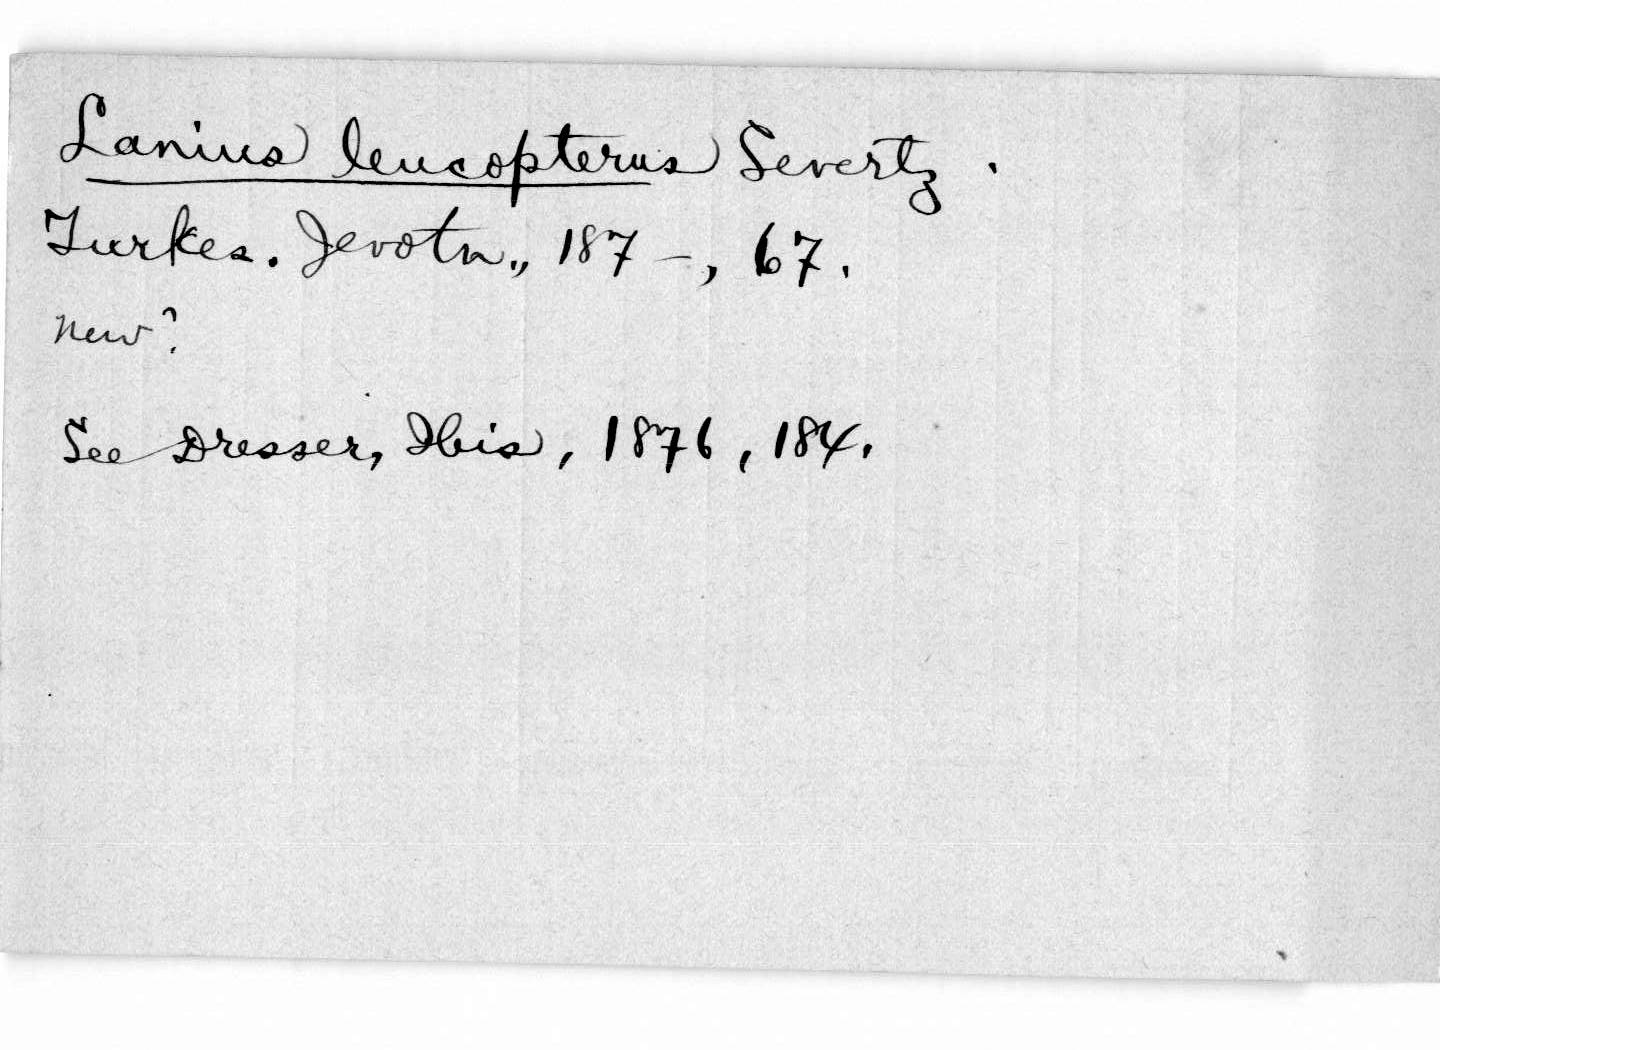 Lanius leucopterus Severtz.
Turkes. Jevotn., 187-, 67.
New?
See Dresser, Ibis, 1876, 184.